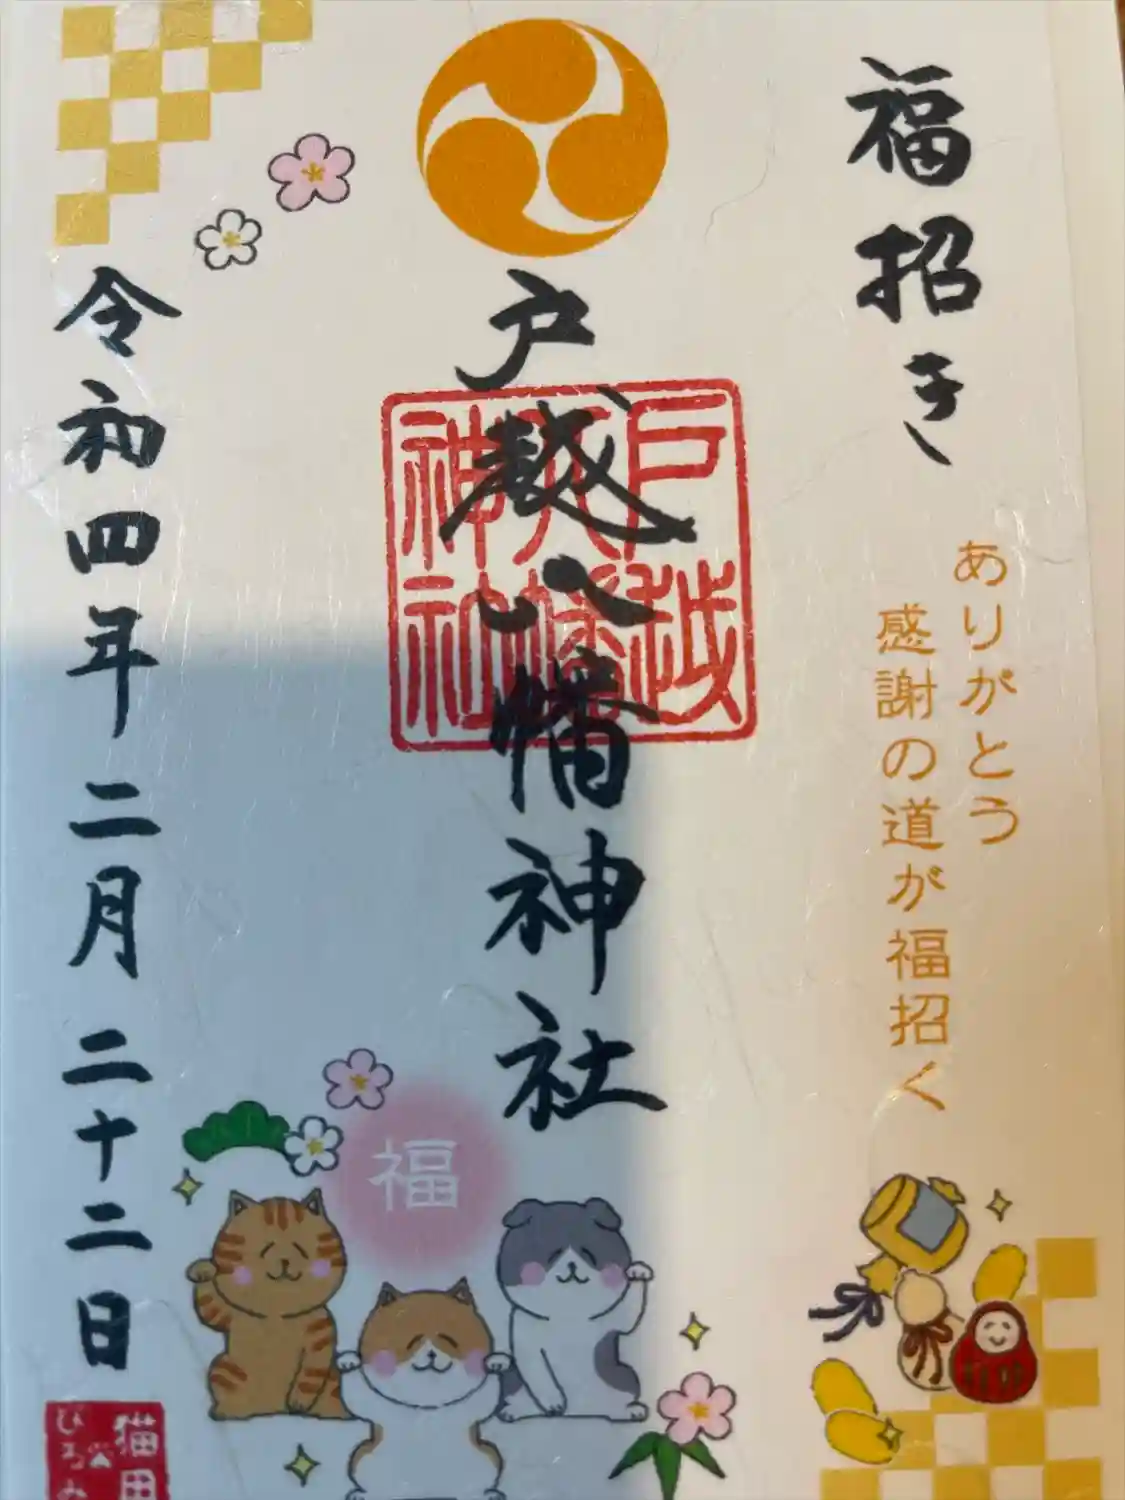 福招き
ありがとう
感謝の道が福招く
戸越八幡神社
戸越
八幡
神社
令和四年二月二十二日
福
猫田
びろみ